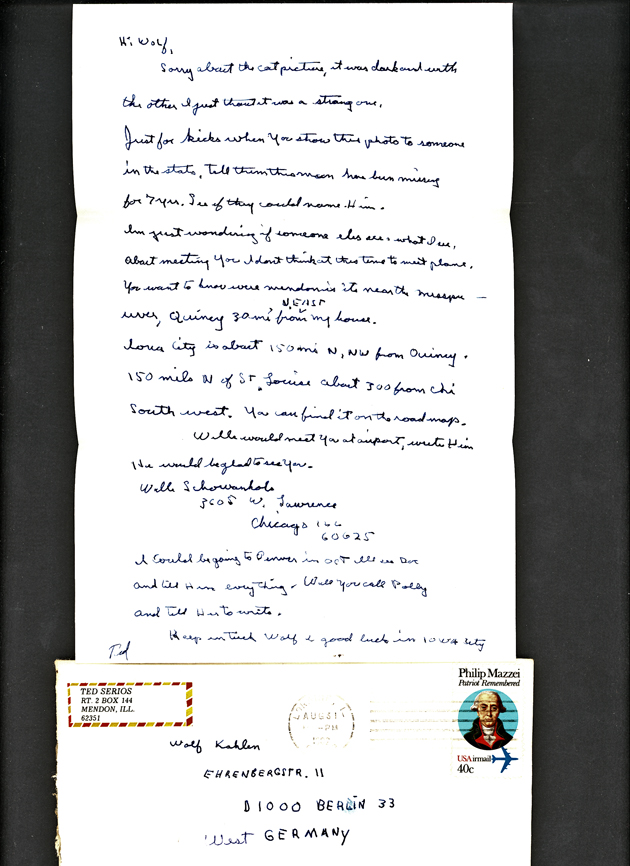 Hi Wolf,
Sorry about the cat picture, it was dark and with
the other I just thout it was a strang one.
Just for kicks when You show this photo to someone
in the stats, tell them this moon have bin missing
for 7 yrs. See if they could name Him.
Im just wondering if someone eles sees what I see.
about meeting You I dont think at this time to meet plane.
You want to know were mendon is its near the
N. EAST
river, Quincy 30 mi from my house.
Iowa City is about 150 mi N, NW from Quincy.
150 mils N of ST. Louise about 300 from Chi
South west. You can find it on the road map.
Wille would meet You at airport, write Him
He would be glad to see You.
Wille
3605 W. Lawrence
Chicago
60625
I Could be going to Denver in OCT Ill see Doc
and tell Him everything. Will You call Polly
and tell Her to write.
Keep in tuch Wolf & good luck in IOWA City
Ted
TED SERIOS
RT. 2 BOX 144
MENDON, ILL.
62351
AUG
PM
Philip Mazzei
Patriot Remembered
USAirmail
40c
Wolf Kahlen
EHRENBERGSTR. 11
D 1000 BERLIN 33
West GERMANY